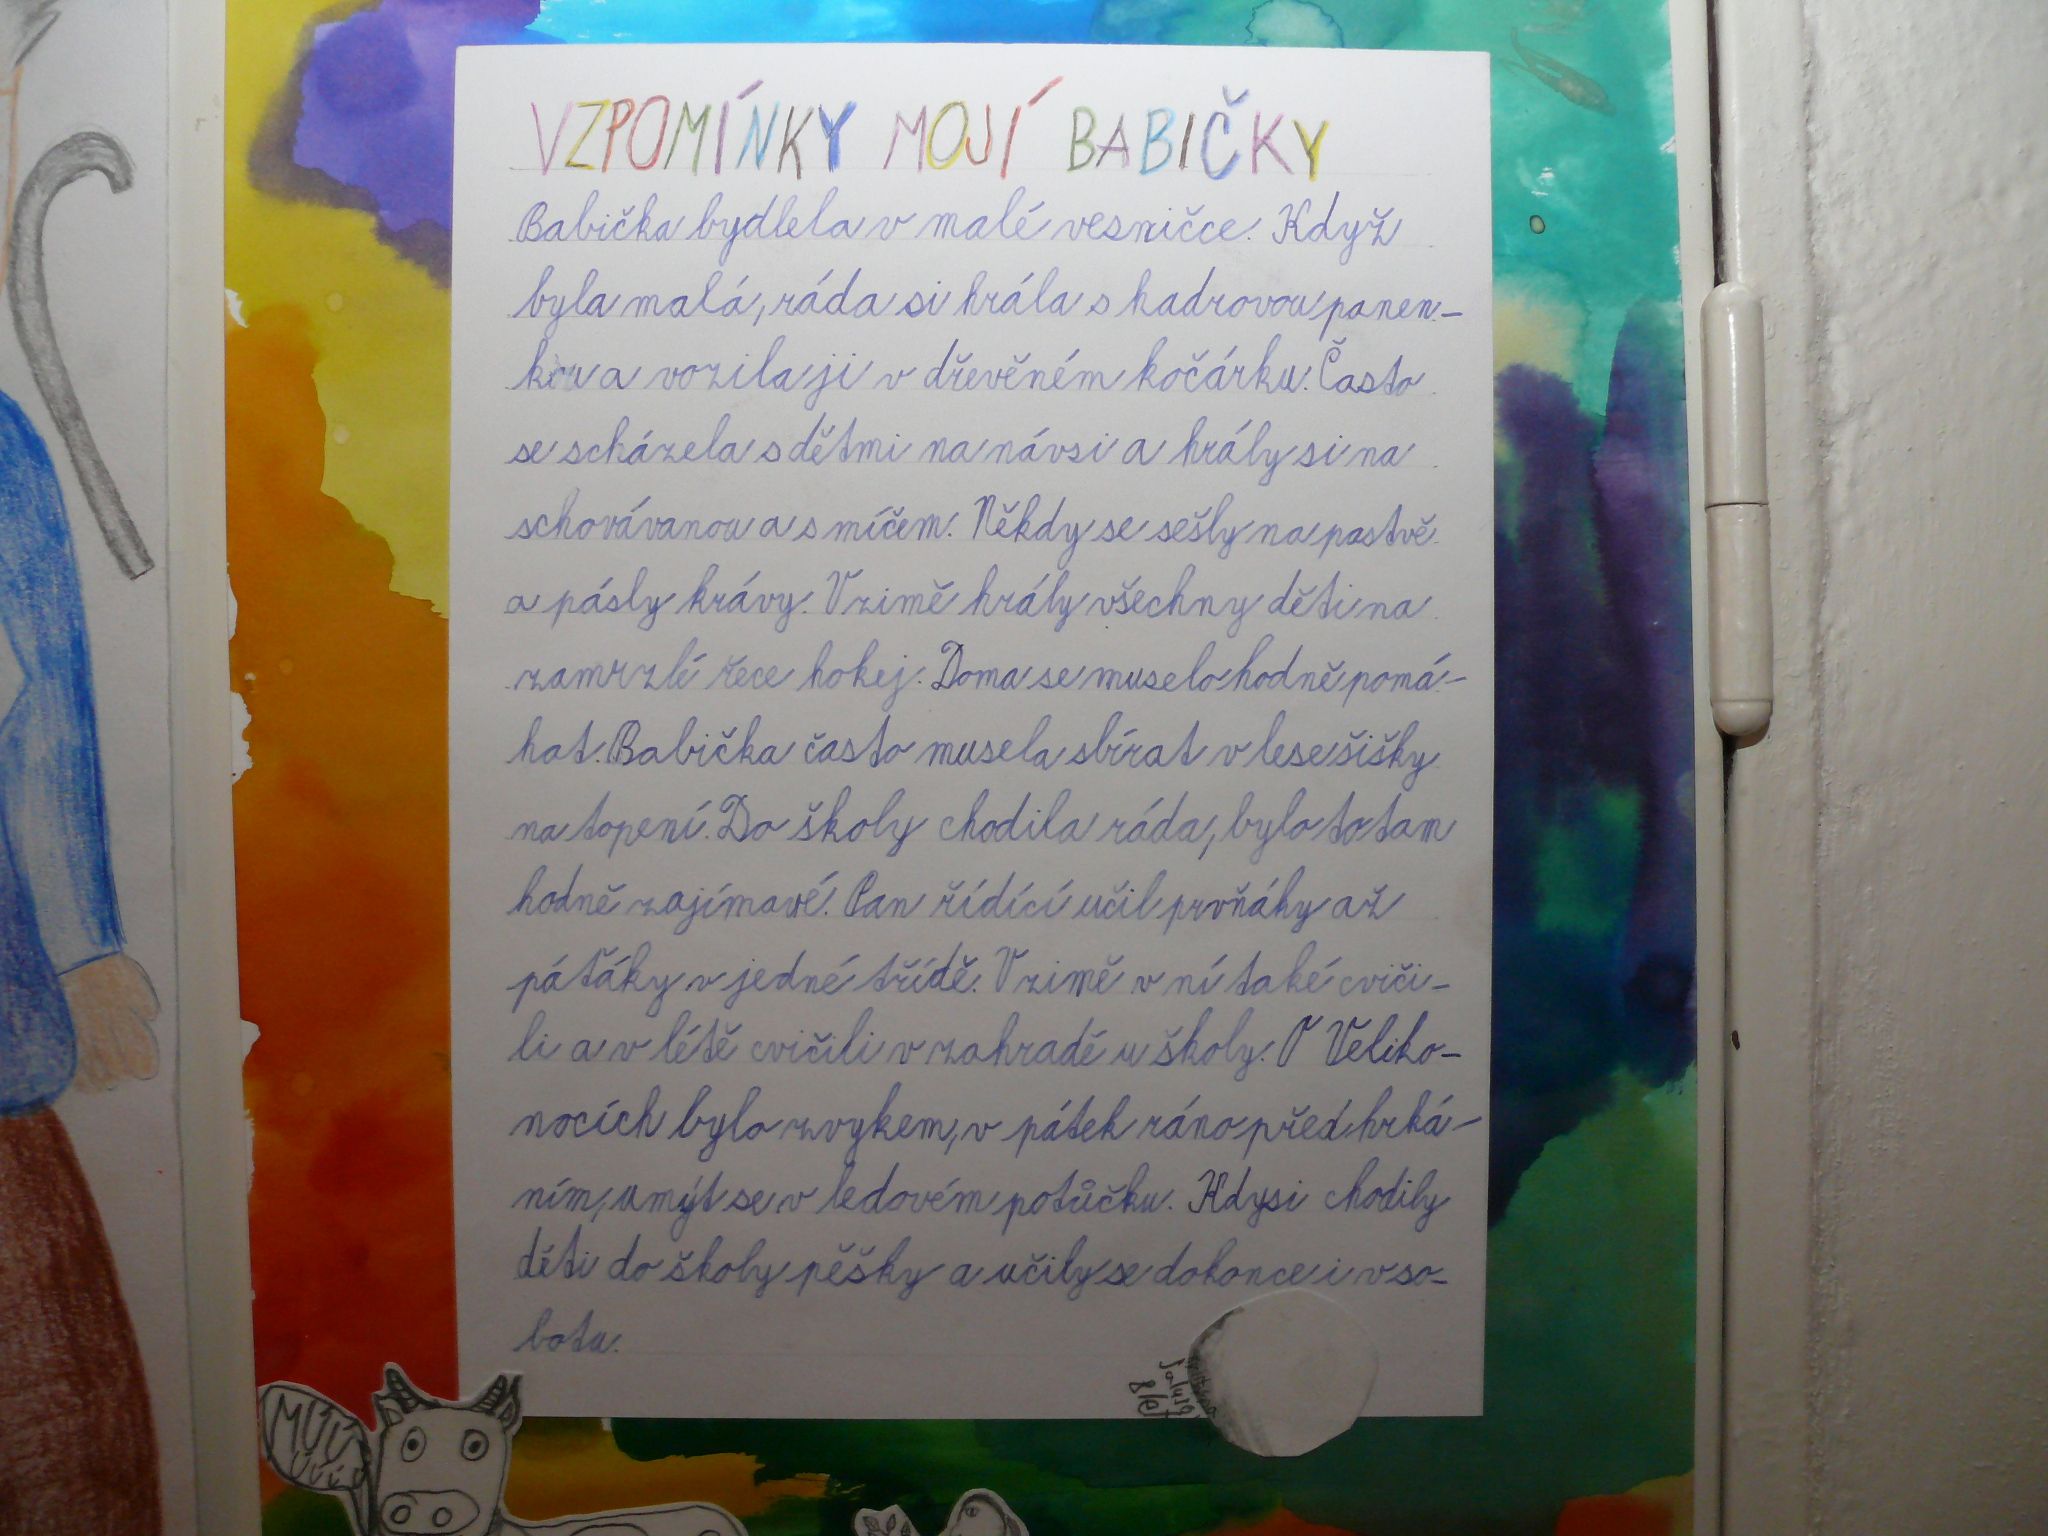 VZPOMÍNKY MOJÍ BABIČKY
Babička bydlela v malé vesničce. Když
byla malá, ráda si hrála s hadrovou panen-
kou a vozila ji v dřevěném kočárku. Často
se scházela s dětmi na návsi a hrály si na
schovávanou a s míčem. Někdy se sešly na pastvě
a pásly krávy. V zimě hrály všechny děti na
zamrzlé řece hokej. Doma se muselo hodně pomá-
hat. Babička často musela sbírat v lese šišky
na topení. Do školy chodila ráda, bylo to tam
hodně zajímavé. Pan řídící učil prvňáky až
páťáky v jedné třídě. V zimě v ní také cviči-
li a v létě cvičili v zahradě u školy. O Veliko-
nocích bylo zvykem, v pátek ráno před hrká-
ním, umýt se v ledovém potůčku. Kdysi chodily
děti do školy pěšky a učily se dokonce i v so-
botu.
8 let
MŮŮ